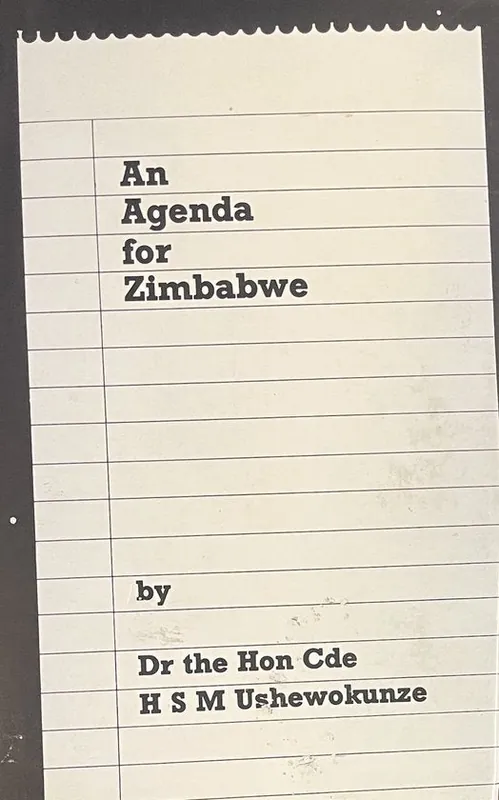 An
Agenda
for
Zimbabwe
by
Dr the Hon Cde
H S M Ushewokunze